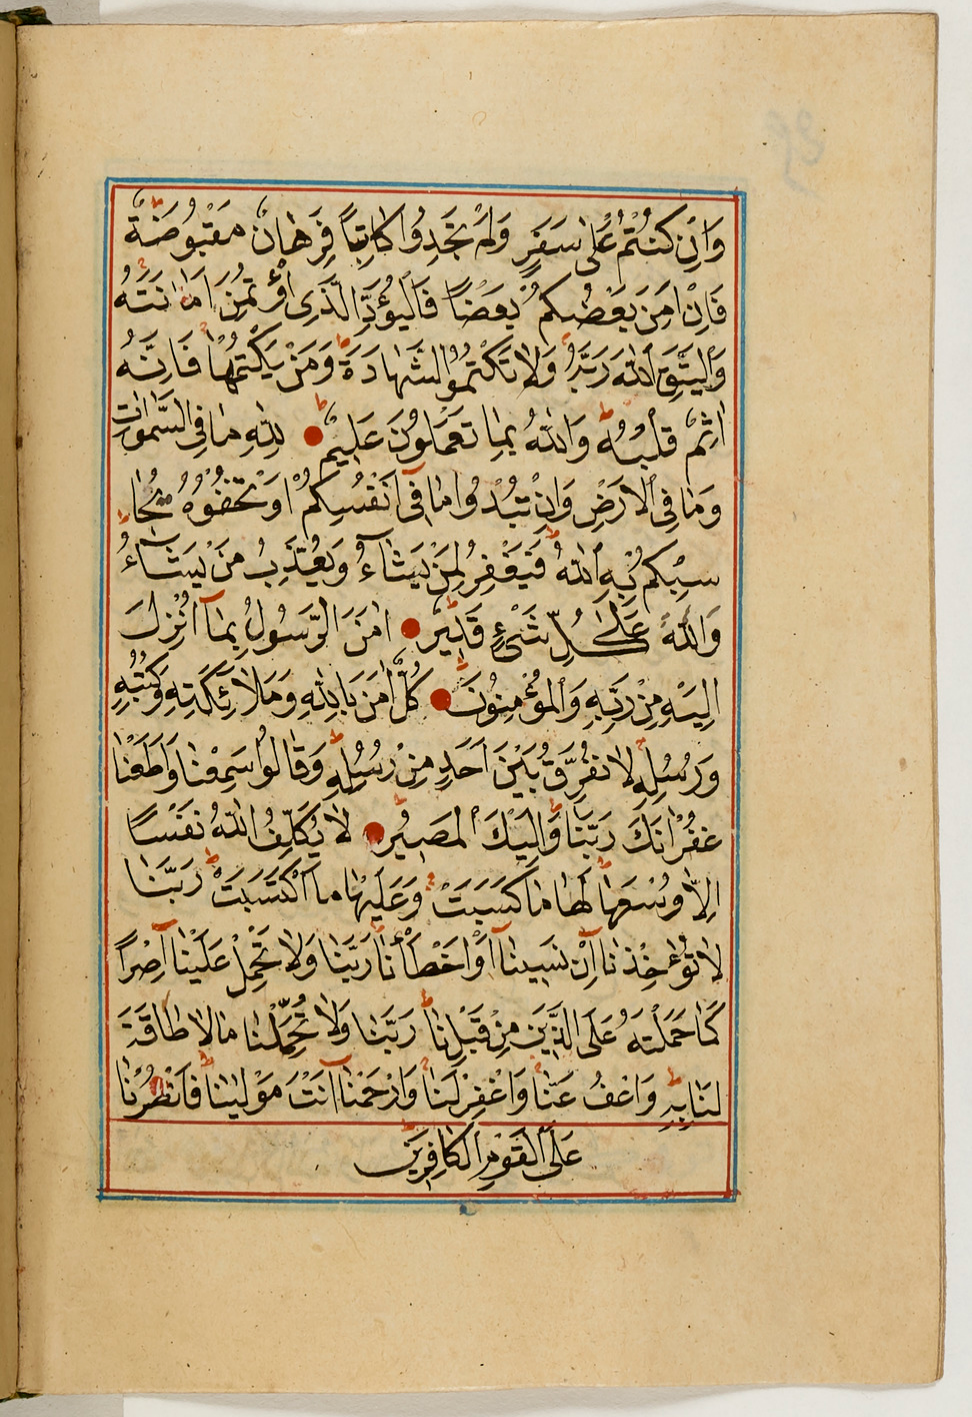 وَاِنْ كُنْتُمْ عَلٰى سَفَرٍ وَلَمْ تَجِدُوا كَاتِبًا فَرِهَانٌ مَقْبُوضَةٌ
فَاِنْ اَمِنَ بَعْضُكُمْ بَعْضًا فَلْيُؤَدِّ الَّذِى اؤْتُمِنَ اَمَانَتَهُ
وَلْيَتَّقِ اللّٰهَ رَبَّهُ وَلَا تَكْتُمُوا الشَّهَادَةَ وَمَنْ يَكْتُمْهَا فَاِنَّهُ
اٰثِمٌ قَلْبُهُ وَاللّٰهُ بِمَا تَعْمَلُونَ عَلِيمٌ لِلّٰهِ مَا فِى السَّمٰوَاتِ
وَمَا فِى الْاَرْضِ وَاِنْ تُبْدُوا مَا فِى اَنْفُسِكُمْ اَوْ تُخْفُوهُ يُحَا
سِبْكُمْ بِهِ اللّٰهُ فَيَغْفِرُ لِمَنْ يَشَاءُ وَيُعَذِّبُ مَنْ يَشَاءُ
وَاللّٰهُ عَلٰى كُلِّ شَىْءٍ قَدِيرٌ اٰمَنَ الرَّسُولُ بِمَا اُنْزِلَ
اِلَيْهِ مِنْ رَبِّهِ وَالْمُؤْمِنُونَ كُلٌّ اٰمَنَ بِاللّٰهِ وَمَلَائِكَتِهِ وَكُتُبِهِ
وَرُسُلِهِ لَا نُفَرِّقُ بَيْنَ اَحَدٍ مِنْ رُسُلِهِ وَقَالُوا سَمِعْنَا وَاَطَعْنَا
غُفْرَانَكَ رَبَّنَا وَاِلَيْكَ الْمَصِيرُ لَا يُكَلِّفُ اللّٰهُ نَفْسًا
اِلَّا وُسْعَهَا لَهَا مَا كَسَبَتْ وَعَلَيْهَا مَا اكْتَسَبَتْ رَبَّنَا
لَا تُؤَاخِذْنَا اِنْ نَسِينَا اَوْ اَخْطَأْنَا رَبَّنَا وَلَا تَحْمِلْ عَلَيْنَا اِصْرًا
كَمَا حَمَلْتَهُ عَلَى الَّذِينَ مِنْ قَبْلِنَا رَبَّنَا وَلَا تُحَمِّلْنَا مَا لَا طَاقَةَ
لَنَا بِهِ وَاعْفُ عَنَّا وَاغْفِرْ لَنَا وَارْحَمْنَا اَنْتَ مَوْلٰينَا فَانْصُرْنَا
عَلَى الْقَوْمِ الْكَافِرِينَ